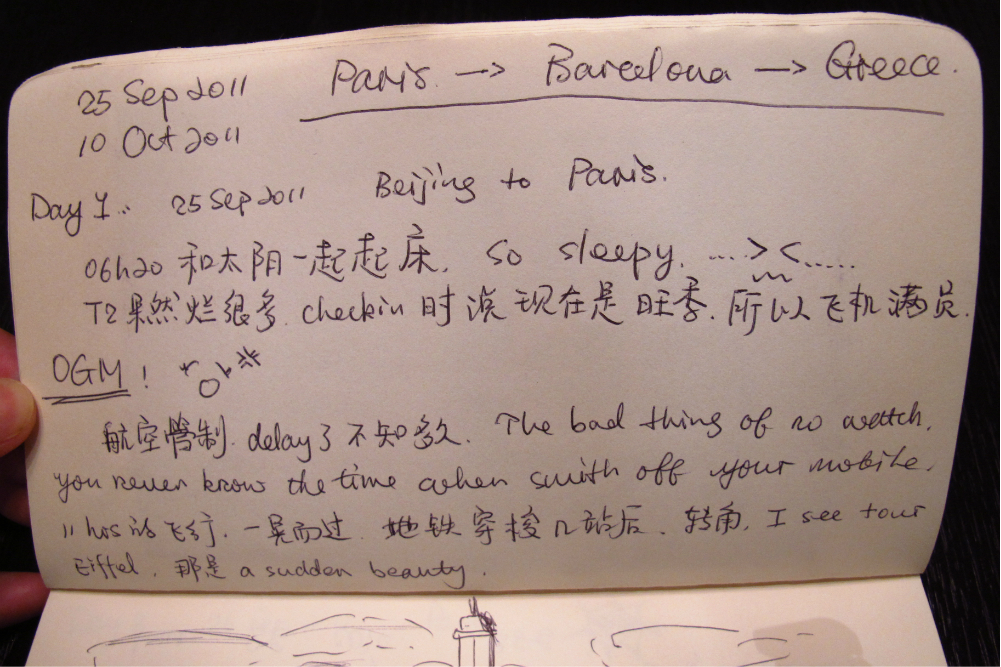 25 Sep 2011
10 Oct 2011
Paris → Barcelona → Greece.
Day 1.. 25 Sep 2011 Beijing to Paris.
06h20 和太阳一起起床. so sleepy. ....> <.....
T2果然烂很多. checkin 时说现在是旺季. 所以飞机满员.
OGM!
航空管制. delay了不知多久. The bad thing of no watch.
you never know the time when swith off your mobile.
11 hrs的飞行. 一晃而过. 地铁穿梭几站后. 转角, I see tour
Eiffel. 那是 a sudden beauty.